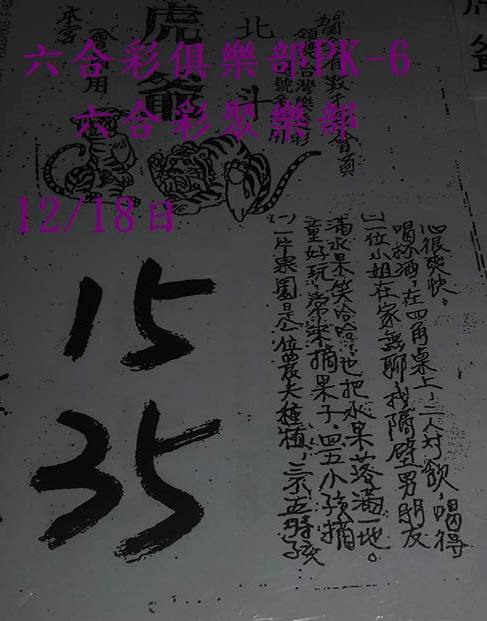 六合彩俱樂部PK-6
六合彩聚樂部
12/18日
虎爺
北斗
15
35
(一)一片果園是一位農夫種植,三不五時孩
童好玩,常來摘果子,四五小孩摘
滿水果笑哈哈,也把水果落滿一地。
(二)一位小姐在家無聊,找隔壁男朋友
喝杯酒,在四角桌上,二人對飲,喝得
心很爽快。